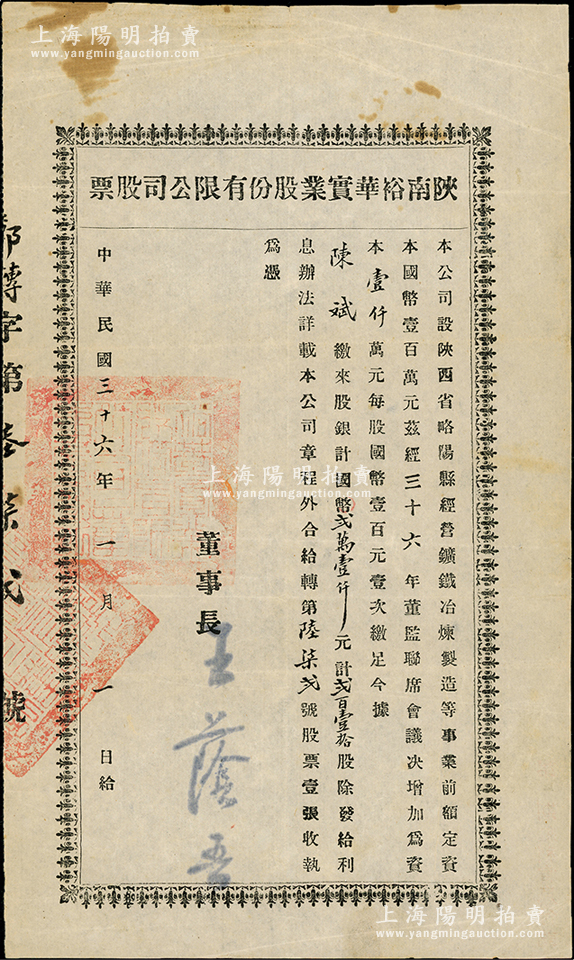 上海陽明拍賣
www.yangmingauction.com
陝南裕華實業股份有限公司股票
本公司設陝西省略陽縣經營鑛鐵冶煉製造等事業前額定資
本國幣壹百萬元茲經三十六年董監聯席會議决增加為資
本壹仟萬元每股國幣壹百元壹次繳足今據
陳斌繳來股銀計國幣弍萬壹仟元計弍百壹拾股除發給利
息辦法詳載本公司章程外合給轉第陸柒弍號股票壹張收執
為憑
董事長
王蔭吾
中華民國三十六年一月一日給
轉字第陸柒弍號
上海陽明拍賣
www.yangmingauction.com
上海陽明拍賣
www.yangmingauction.com